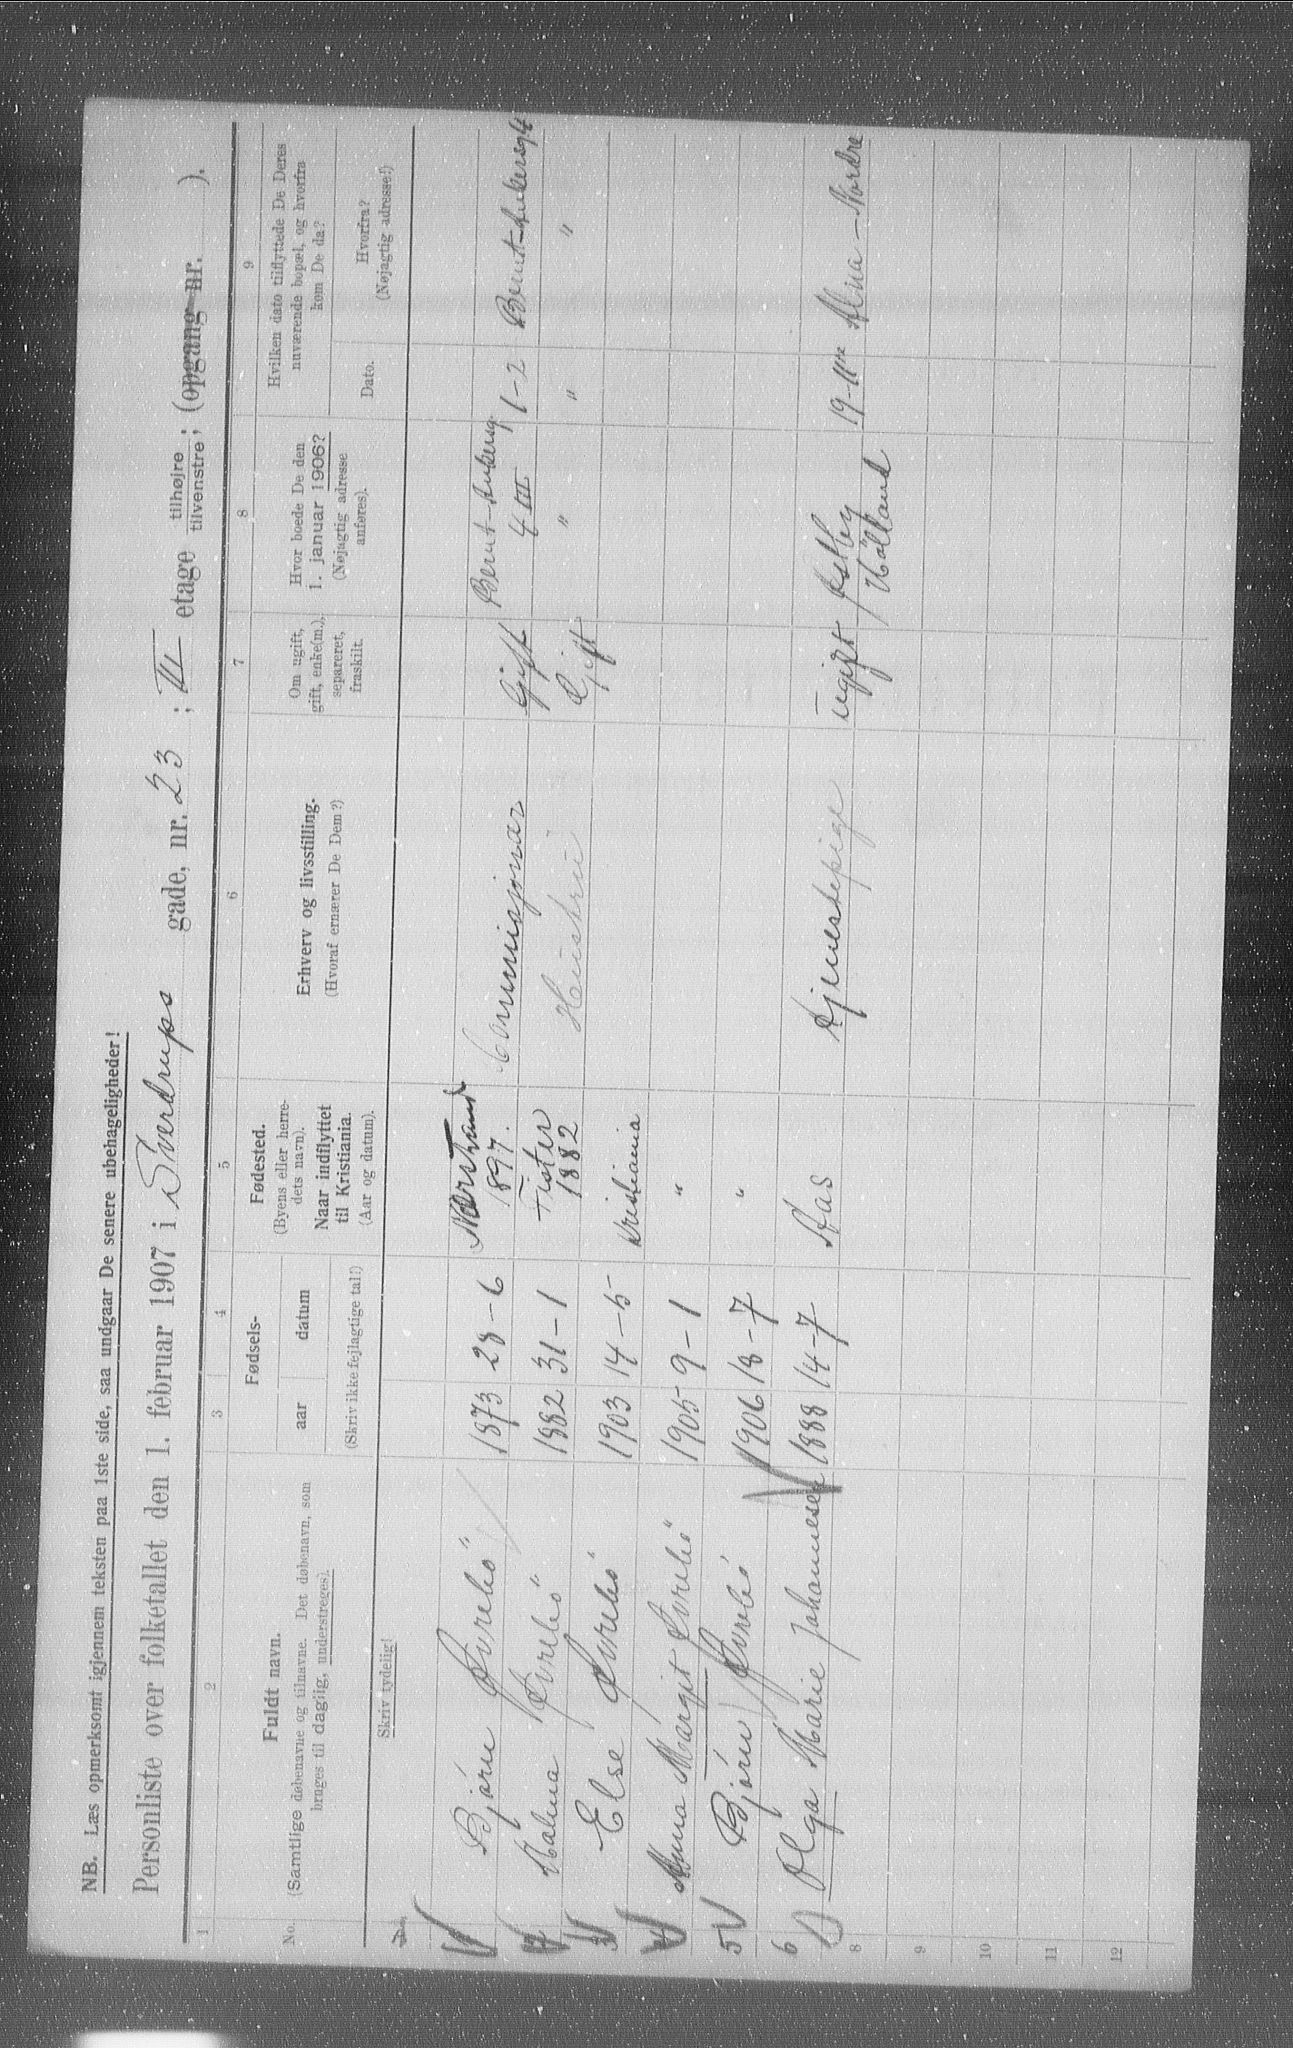 NB. Læs opmerksomt igjennem teksten paa 1ste side, saa undgaar De senere ubehageligheder!
Personliste over folketallet den 1. februar 1907 i Sverdrups gade, nr. 23 ; III etage tilhøjre tilvenstre ; (opgang nr. ).
1 2 3 4 5 6 7 8 9
No.
Fuldt navn.
(Samtlige døbenavne og tilnavne. Det døbenavn, som
bruges til daglig, understreges).
Skriv tydelig!
Fødsels-
aar datum
(Skriv ikke fejlagtige tal!)
Fødested.
(Byens eller herre-
dets navn).
Naar indflyttet
til Kristiania.
(Aar og datum).
Erhverv og livsstilling.
(Hvoraf ernærer De Dem?)
Om ugift,
gift, enke(m.),
separeret,
fraskilt.
Hvor boede De den
1. januar 1906?
(Nøjagtig adresse
anføres).
Hvilken dato tilflyttede De Deres
nuværende bopæl, og hvorfra
kom De da?
Dato.
Hvorfra?
(Nøjagtig adresse!)
Bjørn 1873 28-6 Nærstrand 1897. Gift Bernt Ankersg 4 III 1-2 Bernt Ankersg 4
Malma 1882 31-1 Fister 1882 Hustru Gift " " "
3 Else 1903 14-5 Kristiania
4 Anna Margit 1905 9-1 "
5 Bjørn 1906 18-7 "
6 Olga Marie Johannesen 1888 14-7 Aas Tjenestepige ugift 19-11 Alna-Nordre
8
9
10
11
12